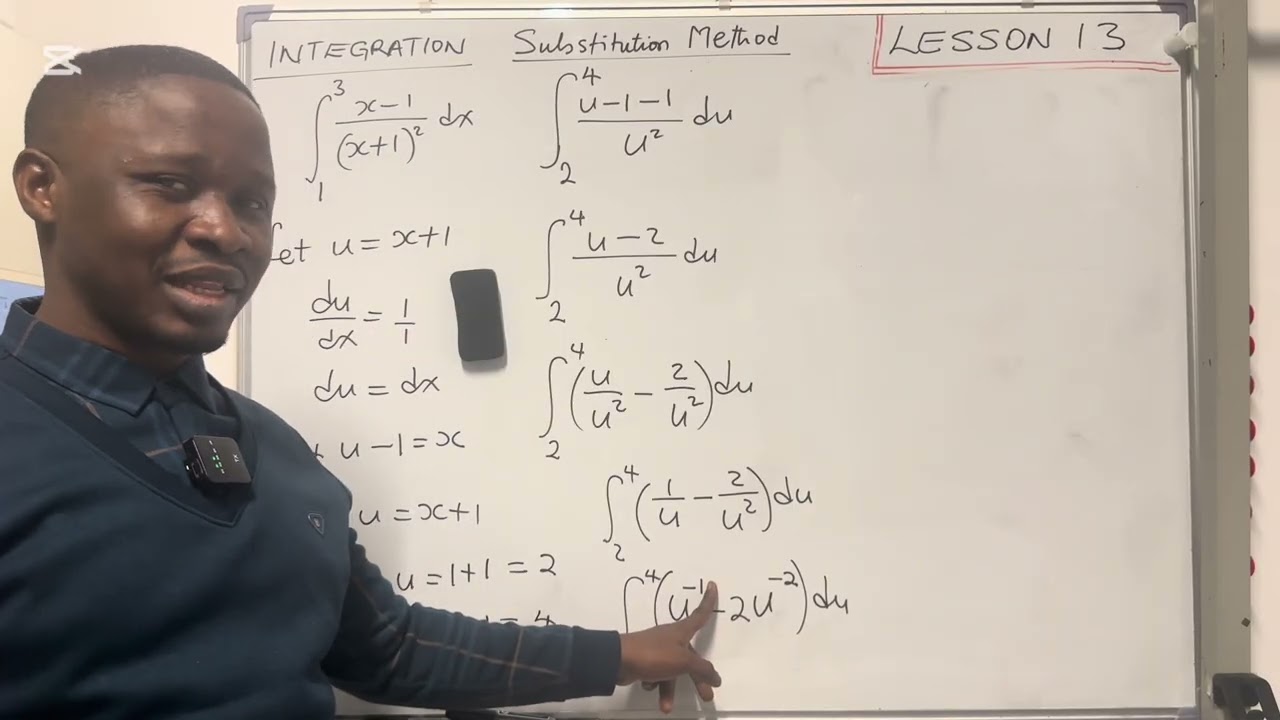 INTEGRATION Substitution Method
LESSON 13
∫₁³ (x-1)/(x+1)² dx
Let u = x+1
du/dx = 1/1
du = dx
u - 1 = x
u = x+1
u = 1+1 = 2
= 4
∫₂⁴ (u-1-1)/u² du
∫₂⁴ (u-2)/u² du
∫₂⁴ (u/u² - 2/u²) du
∫₂⁴ (1/u - 2/u²) du
∫⁴ (u⁻¹ - 2u⁻²) du